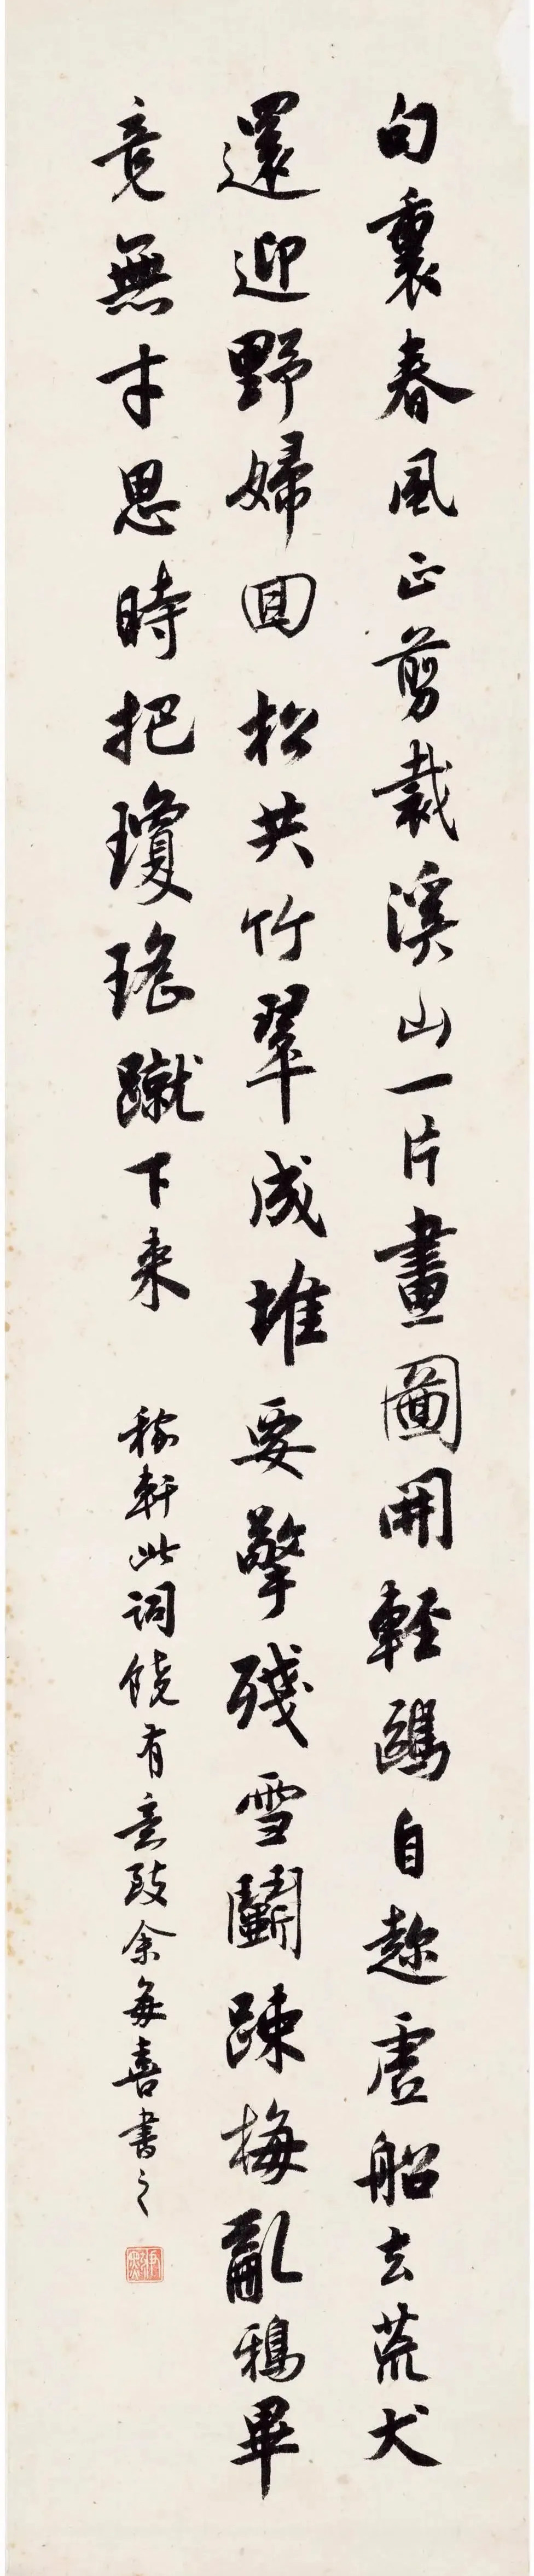 句裏春風正剪裁溪山一片畫圖開輕鷗自趁虛船去荒犬
還迎野婦回松共竹翠成堆要擎殘雪鬬踈梅亂鴉畢
竟無才思時把瓊瑤蹴下来
稼軒此詞饒有意致余每喜書之